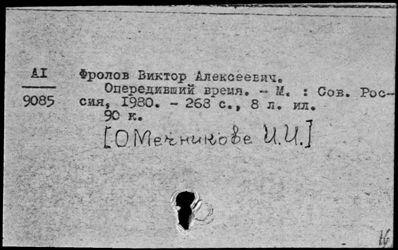 АI
9085
Фролов Виктор Алексеевич.
Опередивший время. - М. : Сов. Рос-
сия, I980. - 268 с., 8 л. ил.
90 к.
[О Мечникове И.И.]
16